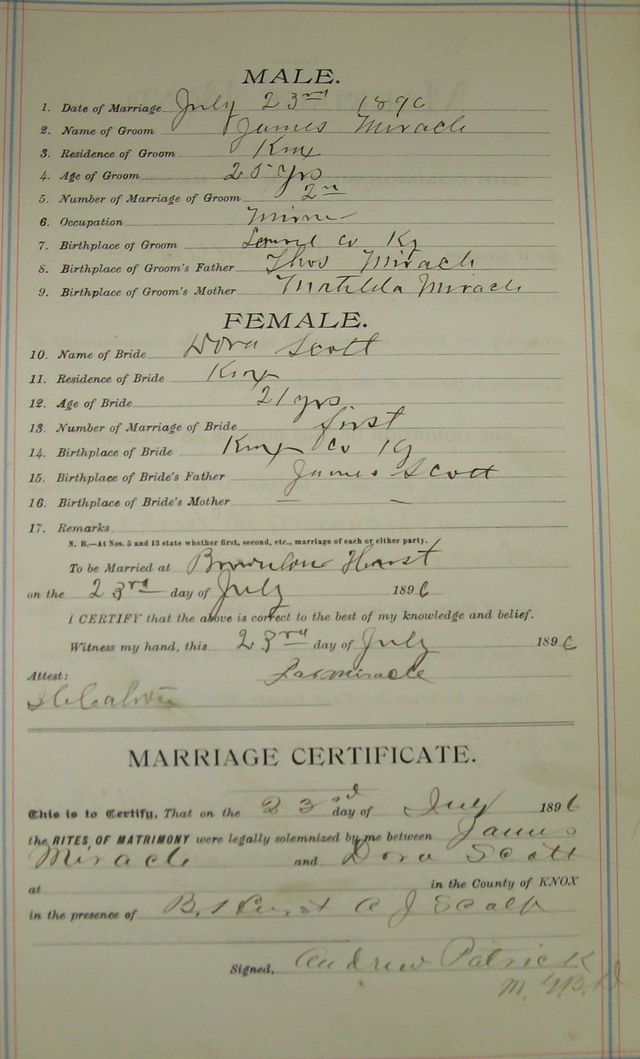 MALE.
1. Date of Marriage July 23rd 1896
2. Name of Groom James Miracle
3. Residence of Groom Knox
4. Age of Groom 25 yrs
5. Number of Marriage of Groom 2n
6. Occupation Miner
7. Birthplace of Groom Laurel Co Ky
8. Birthplace of Groom's Father Thos Miracle
9. Birthplace of Groom's Mother Matilda Miracle
FEMALE.
10. Name of Bride Dora Scott
11. Residence of Bride Knox
12. Age of Bride 21 yrs
13. Number of Marriage of Bride first
14. Birthplace of Bride Knox Co Ky
15. Birthplace of Bride's Father James Scott
16. Birthplace of Bride's Mother — —
17. Remarks
N. B.—At Nos. 5 and 13 state whether first, second, etc., marriage of each or either party.
To be Married at
on the 23rd day of July 1896
I CERTIFY that the above is correct to the best of my knowledge and belief.
Witness my hand, this 23rd day of July 1896
Attest: Jas Miracle
MARRIAGE CERTIFICATE.
This is to Certify, That on the 23rd day of July 1896
the RITES OF MATRIMONY were legally solemnized by me between James
Miracle and Dora Scott
at in the County of KNOX
in the presence of A J Scalf
Signed, Andrew Patrick